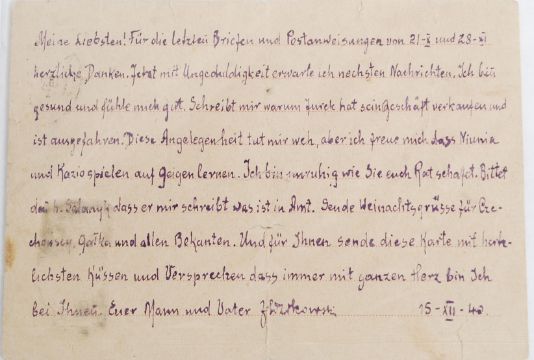 Meine Liebsten! Für die letzten Briefen und Postanweisungen von 21-X und 28-XI
herzliche Danken. Jetzt mit Ungeduldigkeit erwarte ich nechsten Nachrichten. Ich bin
gesund und fühle mich gut. Schreibt mir warum Jurek hat sein Geschäft verkaufen und
ist ausgefahren. Diese Angelegenheit tut mir weh, aber ich freue mich dass Niunia
und Kazio spielen auf Geigen lernen. Ich bin unruhig wie Sie euch Rat schafet. Bittet
den H. dass er mir schreibt was ist in Amt. Sende Weinachtsgrüsse für
und allen Bekanten. Und für Ihnen sende diese Karte mit herz-
lichsten Küssen und Versprechen dass immer mit ganzen Herz bin Ich
bei Ihnen. Euer Mann und Vater 15-XII-40.